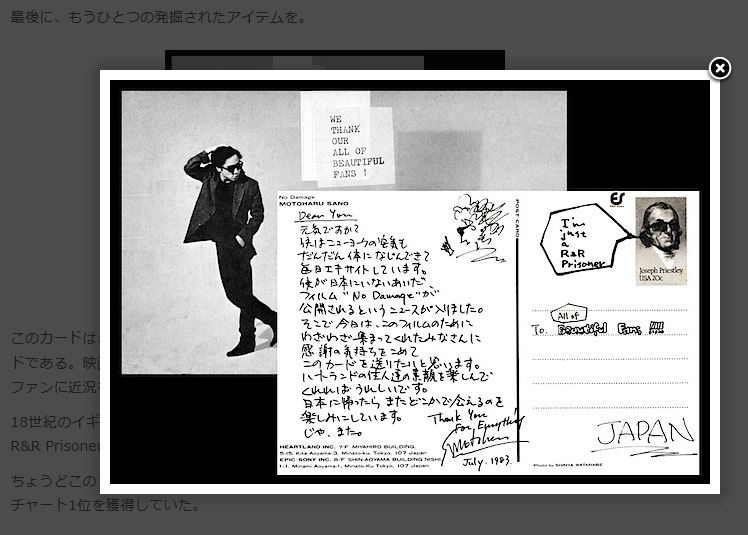 最後に、もうひとつの発掘されたアイテムを。
WE
THANK
OUR
ALL OF
BEAUTIFUL
FANS !
No Damage
MOTOHARU SANO
Dear You
元気ですか?
僕はニューヨークの空気も
だんだん体になじんできて
毎日エキサイトしています。
僕が日本にいないあいだ、
フィルム "No Damage"が
公開されるというニュースが入りました。
そこで今日は、このフィルムのために
わざわざ集まってくれたみなさんに
感謝の気持ちをこめて
このカードを送りたいと思います。
ハートランドの住人達の素顔を楽しんで
くれればうれしいです。
日本に帰ったらまたどこかで会えるのを
楽しみにしています。
じゃ、また。
Thank You
For Everythin'
Motoharu
July. 1983.
HEARTLAND INC. 7F MIYAHIRO BUILDING.
5-15, Kita Aoyama-3, Minato-ku, Tokyo, 107 Japan
EPIC·SONY INC. 8F SHIN-AOYAMA BUILDING NISHI
1-1, Minami Aoyama-1, Minato-Ku Tokyo, 107 Japan
POST CARD
ES
I'm
just
a
R&R
Prisoner
Joseph Priestley
USA 20c
All of
To. Beautiful Fans !!!!
JAPAN
Photo by SHINYA WATANABE
このカードは
ドである。映
ファンに近況
18世紀のイギ
R&R Prisoner
ちょうどこの
チャート1位を獲得していた。